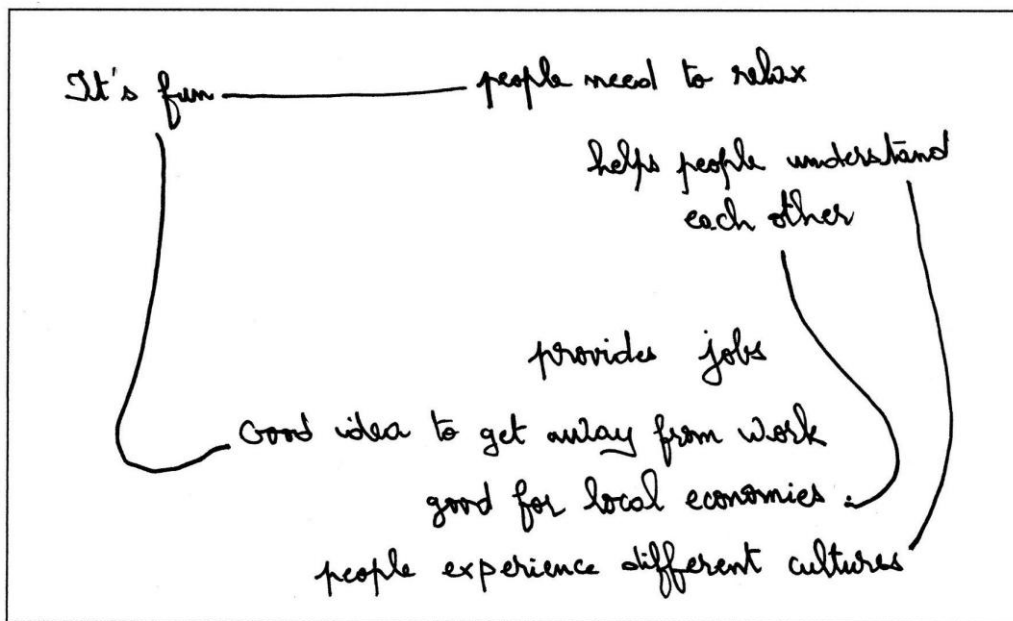 It's fun
people need to relax
helps people understand
each other
provides jobs
Good idea to get away from work
good for local economies.
people experience different cultures